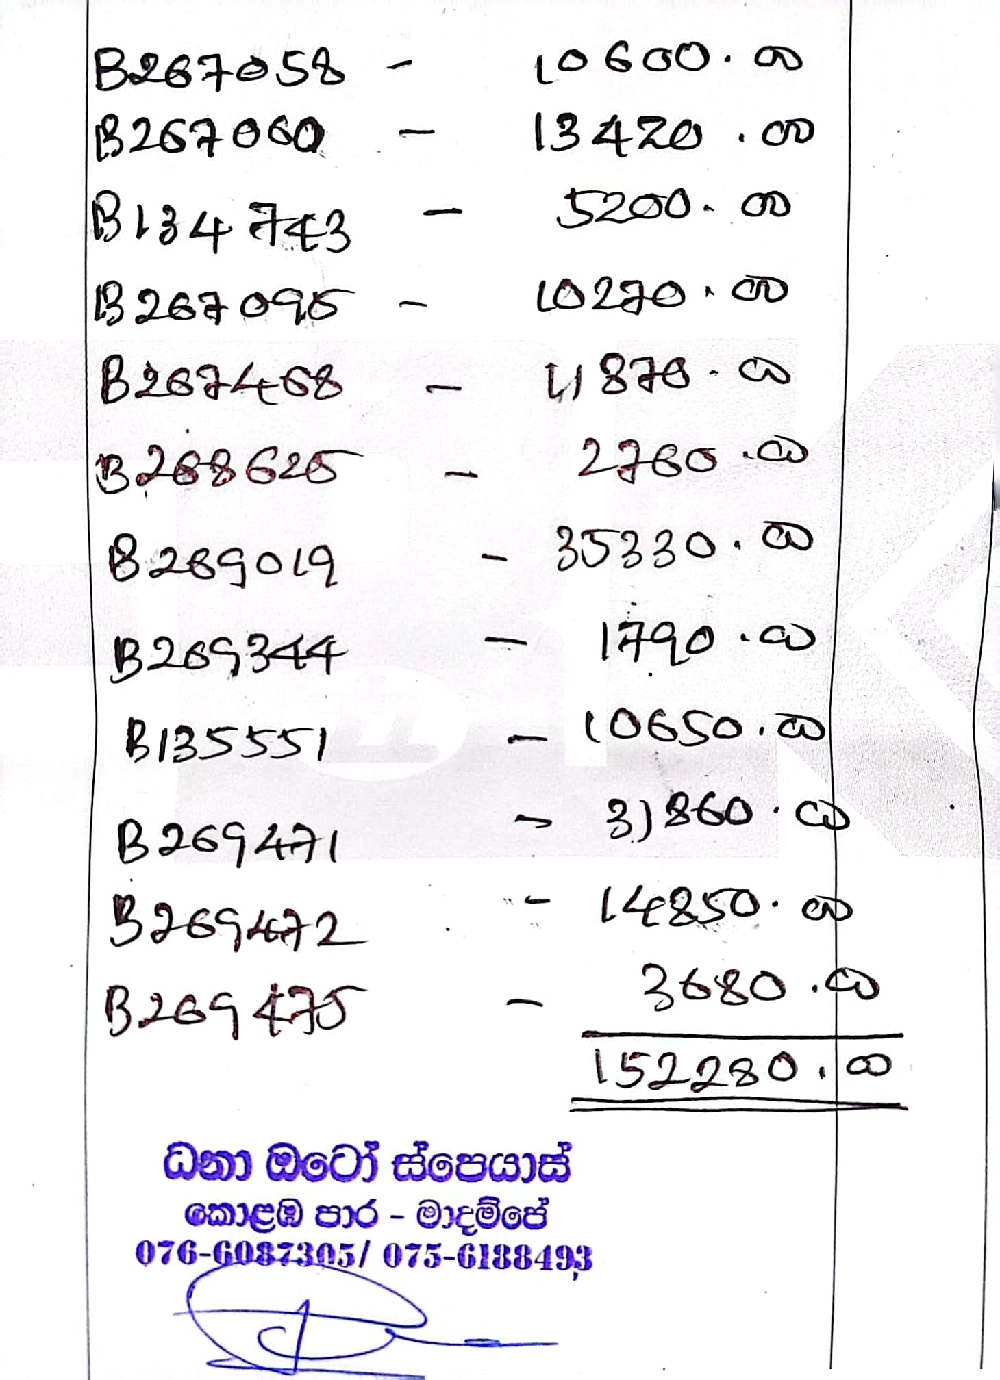 B267058 - 10600.00
B267060 - 13420.00
B134743 - 5200.00
B267095 - 10270.00
B267468 - 11870.00
B268625 - 2760.00
B269019 - 35330.00
B269344 - 1790.00
B135551 - 10650.00
B269471 - 31860.00
B269472 - 14850.00
B269475 - 3680.00
152280.00
ධනා ඔටෝ ස්පෙයාස්
කොළඹ පාර - මාදම්පේ
076-6087305/ 075-6188493